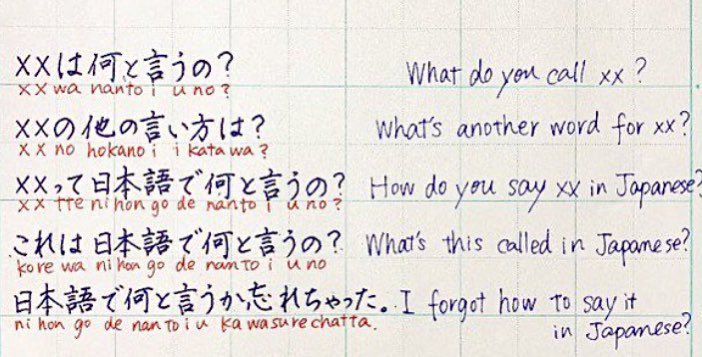 XXは何と言うの? What do you call xx?
xx wa nanto i u no?
XXの他の言い方は? What's another word for xx?
xx no hokano i i kata wa?
XXって日本語で何と言うの? How do you say xx in Japanese?
xx tte ni hon go de nanto i u no?
これは日本語で何と言うの? What's this called in Japanese?
kore wa ni hon go de nanto i u no
日本語で何と言うか忘れちゃった。 I forgot how to say it
ni hon go de nan to i u ka wasure chatta. in Japanese?